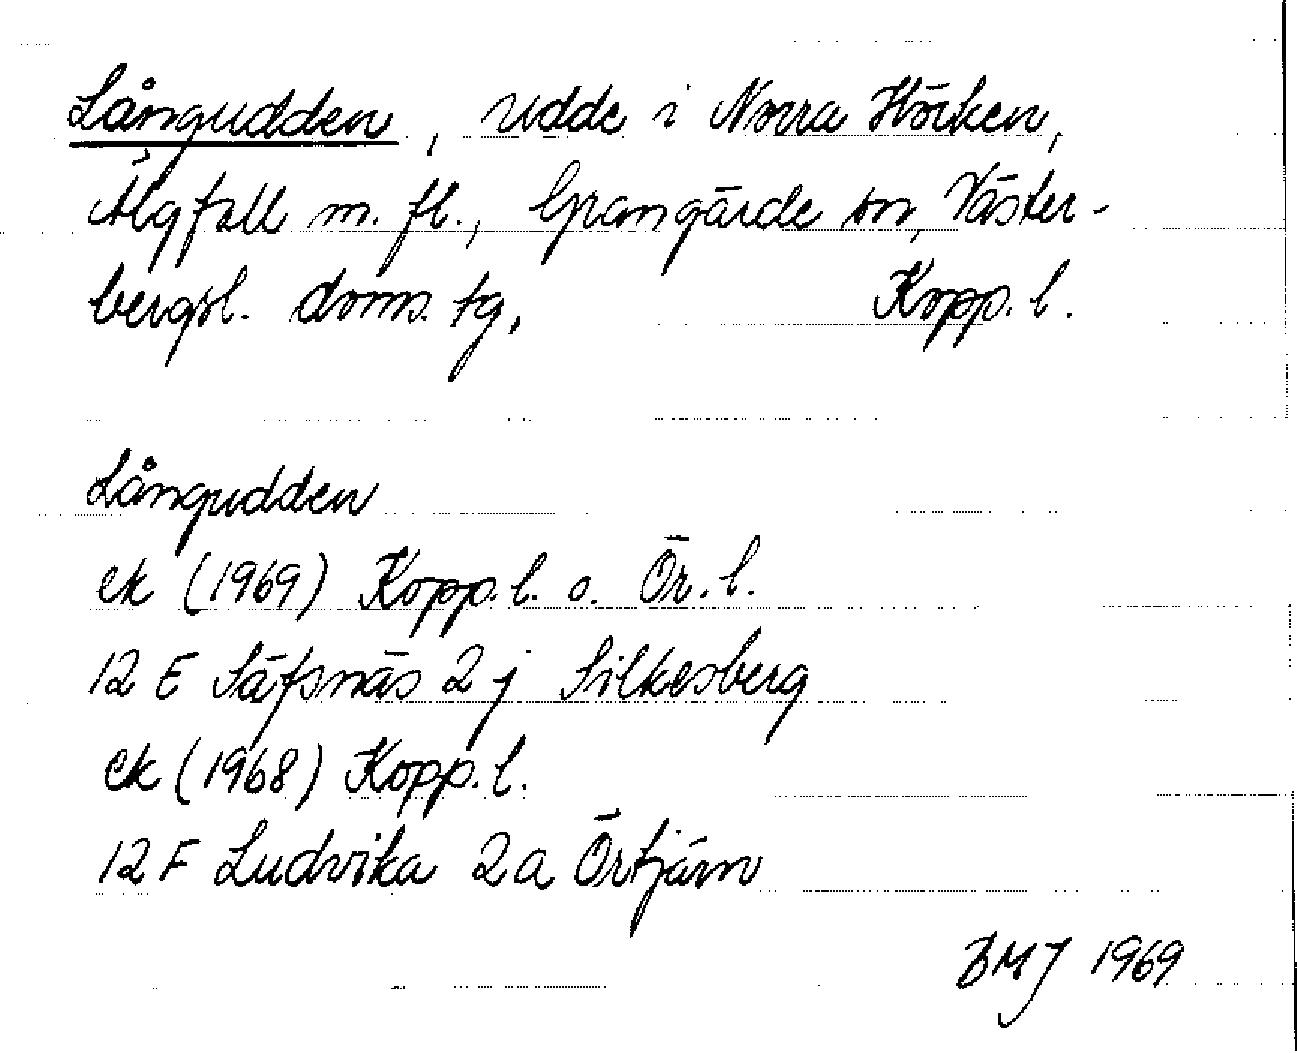 Långudden, udde i Norra Hörken,
Älgfall m. fl., Grangärde sn, Väster-
bergsl. doms. tg, Kopp. l.
Långudden
ek (1969) Kopp. l. o. Ör. l.
12 E Säfsnäs 2 j Silkesberg
ek (1968) Kopp. l.
12 F Ludvika 2a Örtjärn
BMJ 1969